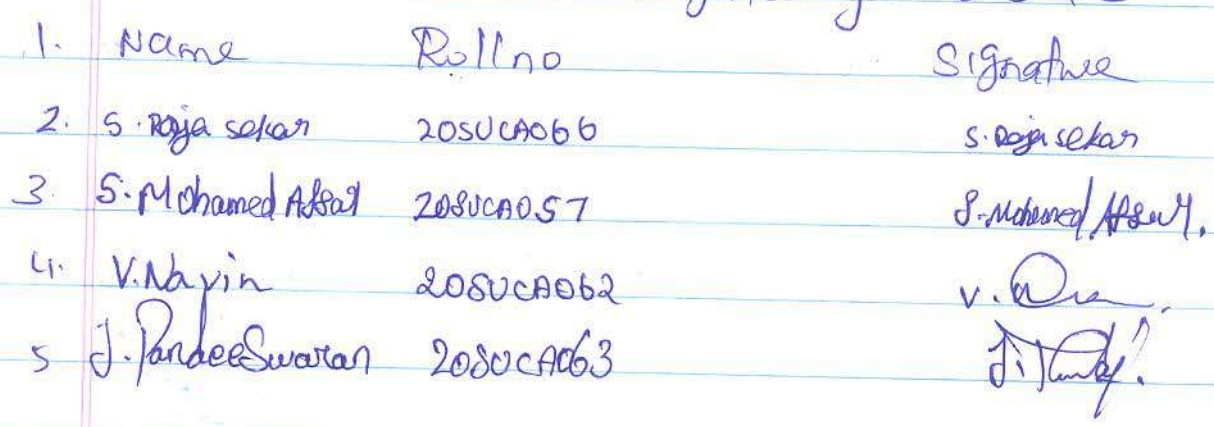 1. Name Rollno Signature
2. S. Raja sekar 20SUCA066 S. Raja sekar
3 S. Mohamed Afsal 20SUCA057 S. Mohamed Afsal.
4. V. Navin 20SUCA062 V.
5 J. PandeeSwaran 20SUCA063 J.